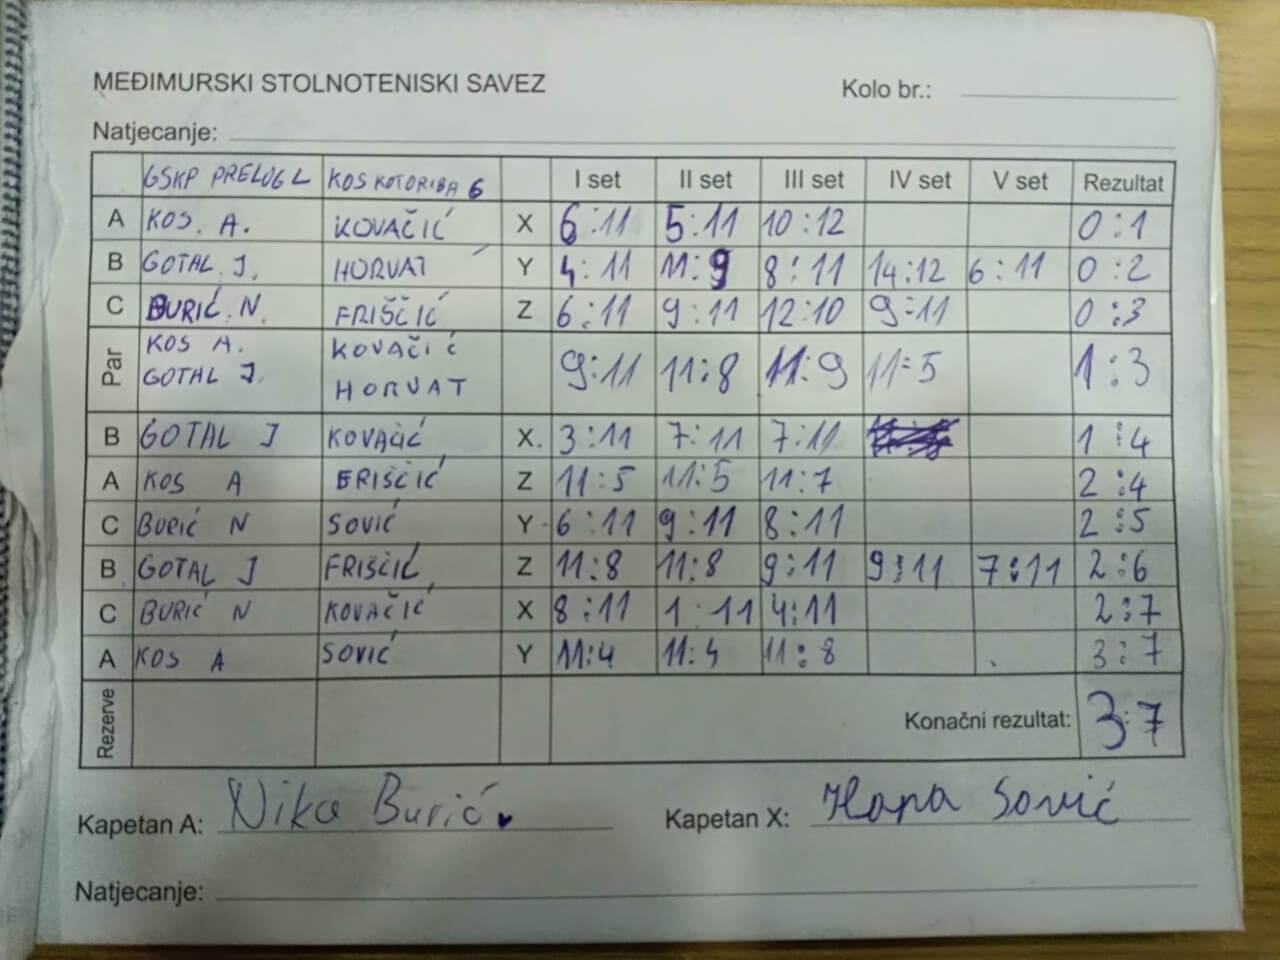 MEĐIMURSKI STOLNOTENISKI SAVEZ
Kolo br.:
Natjecanje:
GSKP PRELOG L KOS KOTORIBA 6 I set II set III set IV set V set Rezultat
A KOS. A. KOVAČIĆ X 6:11 5:11 10:12 0:1
B GOTAL J. HORVAT Y 4:11 11:9 8:11 14:12 6:11 0:2
C BURIĆ. N. FRIŠČIĆ Z 6:11 9:11 12:10 9:11 0:3
Par KOS A. KOVAČIĆ 9:11 11:8 11:9 11:5 1:3
GOTAL J. HORVAT
B GOTAL J KOVAČIĆ X. 3:11 7:11 7:11 1:4
A KOS A FRIŠČIĆ Z 11:5 11:5 11:7 2:4
C BURIĆ N SOVIĆ Y 6:11 9:11 8:11 2:5
B GOTAL J FRIŠČIĆ Z 11:8 11:8 9:11 9:11 7:11 2:6
C BURIĆ N KOVAČIĆ X 8:11 1:11 4:11 2:7
A KOS A SOVIĆ Y 11:4 11:4 11:8 3:7
Rezerve Konačni rezultat: 3:7
Kapetan A: Nika Burić Kapetan X: Hana Sović
Natjecanje: